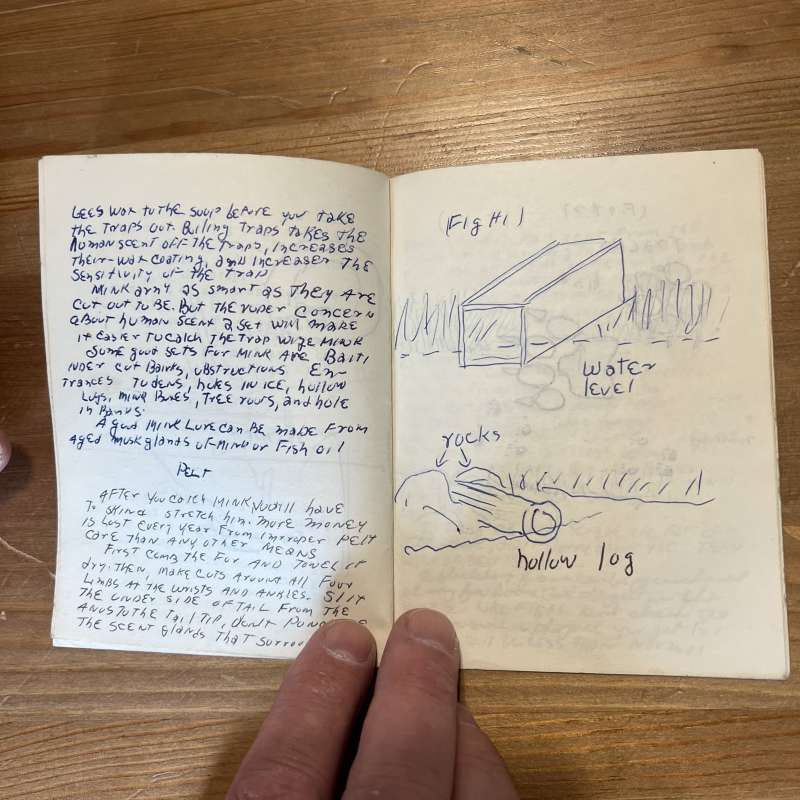 Lees wax to the soup before you take
the traps out. Boiling traps takes the
human scent off the traps, increases
their wax coating, and increases the
sensitivity of the trap
Mink arnt as smart as they are
cut out to be. But the proper concern
about human scent a set will make
it easier to catch the trap wize mink
Some good sets for mink are Baiti
under cut Bainks, obstructions En-
trances to dens, holes in ice, hollow
Logs, mink Boxes, tree roots, and hole
in Banks.
A good mink Lure can be made from
aged musk glands of mink or Fish oil
Pelt
After you catch mink you'll have
to skin & stretch him. more money
is lost every year from improper pelt
care than any other means
First comb the fur and towel it
dry. Then, make cuts around all four
Limbs at the wrists and ankles. Slit
the under side of tail from the
anus to the tail tip, don't
the scent glands that
(Fig #1)
Water
level
rocks
hollow log